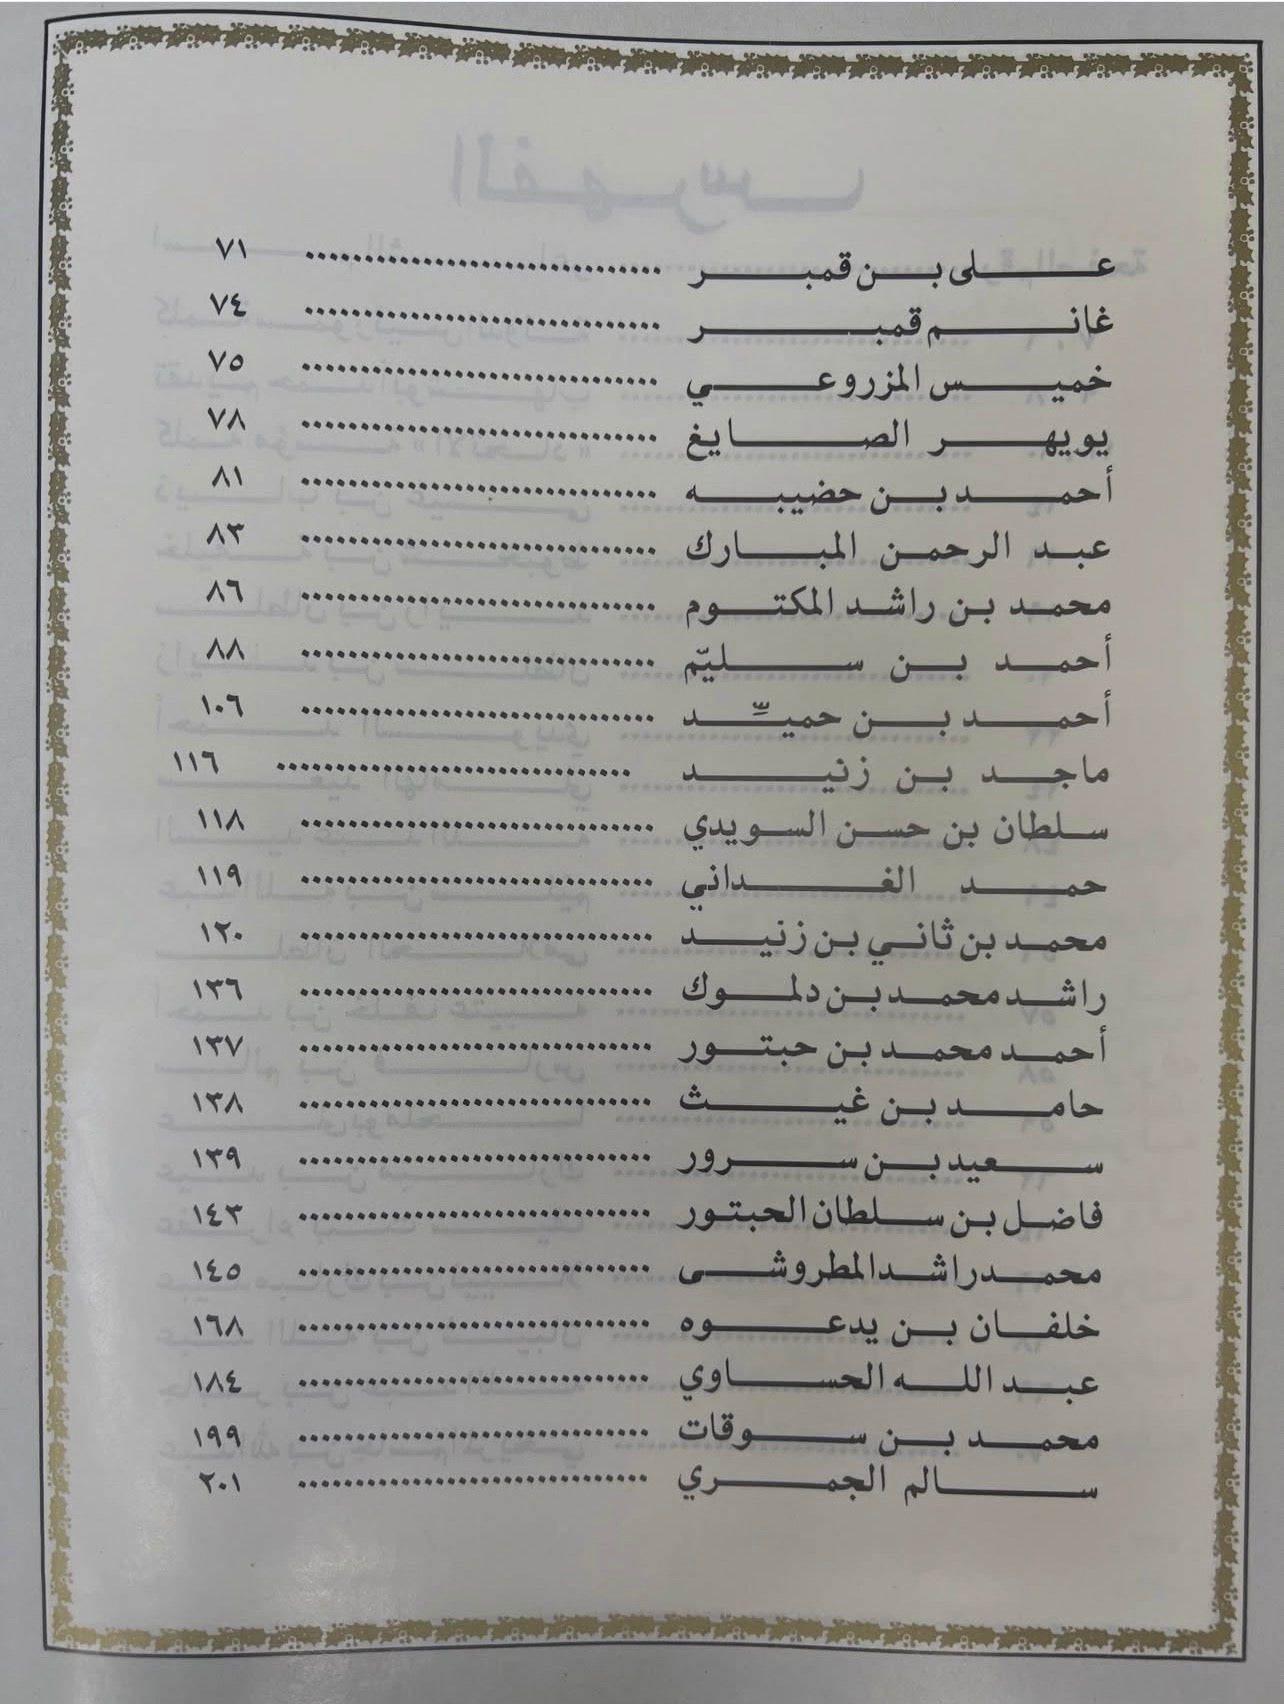 على بن قمبر ٧١
غانم قمبر ٧٤
خميس المزروعي ٧٥
يويهر الصايغ ٧٨
أحمد بن حضيبه ٨١
عبد الرحمن المبارك ٨٣
محمد بن راشد المكتوم ٨٦
أحمد بن سليّم ٨٨
أحمد بن حميد ١٠٦
ماجد بن زنيد ١١٦
سلطان بن حسن السويدي ١١٨
حمد الغداني ١١٩
محمد بن ثاني بن زنيد ١٢٠
راشد محمد بن دلموك ١٣٦
أحمد محمد بن حبتور ١٣٧
حامد بن غيث ١٣٨
سعيد بن سرور ١٣٩
فاضل بن سلطان الحبتور ١٤٣
محمد راشد المطروشى ١٤٥
خلفان بن يدعوه ١٦٨
عبد الله الحساوي ١٨٤
محمد بن سوقات ١٩٩
سالم الجمري ٢٠١